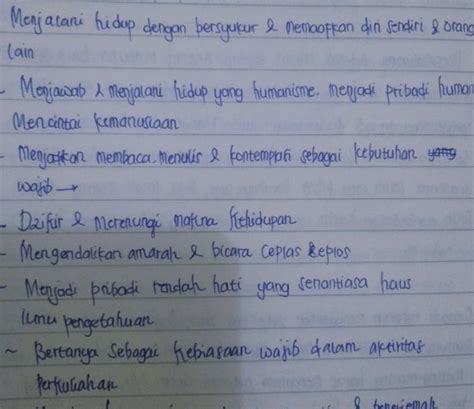 Menjalani hidup dengan bersyukur & memaafkan diri sendiri & orang
lain
- Menjawab & menjalani hidup yang humanisme, menjadi pribadi human
Mencintai kemanusiaan
- Menjadikan membaca, menulis & kontemplasi sebagai kebutuhan yang
wajib →
- Dzikir & merenungi makna kehidupan
- Mengendalikan amarah & bicara ceplas ceplos
- Menjadi pribadi rendah hati yang senantiasa haus
ilmu pengetahuan
~ Bertanya sebagai kebiasaan wajib dalam aktivitas
perkuliahan
&